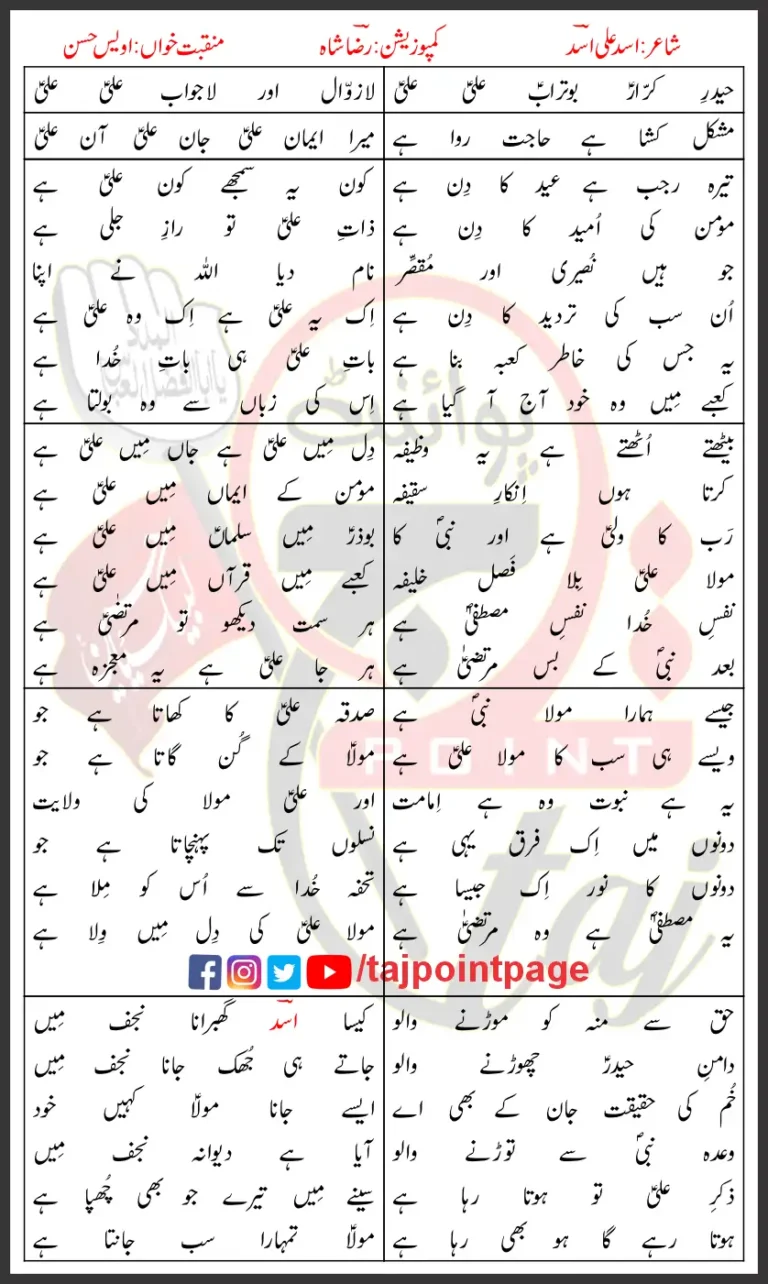 شاعر: اسد علی اسدؔ کمپوزیشن: رضاؔ شاہ منقبت خواں: اویس حسن
حیدرِ کرّارؑ بوترابؑ علیؑ علیؑ
لازوّال اور لاجواب علیؑ علیؑ
مشکل کشا ہے حاجت روا ہے
میرا ایمان علیؑ جان علیؑ آن علیؑ
تیرہ رجب ہے عید کا دِن ہے
مومن کی اُمید کا دِن ہے
جو ہیں نُصیری اور مُقصّر
اُن سب کی تردید کا دِن ہے
یہ جس کی خاطر کعبہ بنا ہے
کعبے مِیں وہ خود آج آ گیا ہے
کون یہ سمجھے کون علیؑ ہے
ذاتِ علیؑ تو رازِ جلی ہے
نام دیا اللہ نے اپنا
اِک یہ علیؑ ہے اِک وہ علیؑ ہے
باتِ علیؑ ہی باتِ خُدا ہے
اِس کی زباں سے وہ بولتا ہے
بیٹھتے اُٹھتے ہے یہ وظیفہ
کرتا ہوں اِنکارِ سقیفہ
رَب کا ولیؑ ہے اور نبیؐ کا
مولا علیؑ بِلا فَصل خلیفہ
نفسِ خُدا نفسِ مصطفیٰؐ ہے
بعد نبیؐ کے بس مرتضیٰؑ ہے
دِل مِیں علیؑ ہے جاں مِیں علیؑ ہے
مومن کے ایماں مِیں علیؑ ہے
بوذرؑ مِیں سلماںؑ مِیں علیؑ ہے
کعبے مِیں قرآں مِیں علیؑ ہے
ہر سمت دیکھو تو مرتضٰیؑ ہے
ہر جا علیؑ ہے یہ معجزہ ہے
جیسے ہمارا مولا نبیؐ ہے
ویسے ہی سب کا مولا علیؑ ہے
یہ ہے نبوت وہ ہے اِمامت
دونوں میں اِک فرق یہی ہے
دونوں کا نور اِک جیسا ہے
یہ مصطفیٰؐ ہے وہ مرتضیٰؑ ہے
صدقہ علیؑ کا کھاتا ہے جو
مولاؑ کے گُن گاتا ہے جو
اور علیؑ مولا کی ولایت
نسلوں تک پہنچاتا ہے جو
تحفہ خُدا سے اُس کو مِلا ہے
مولا علیؑ کی دِل مِیں وِلا ہے
/tajpointpage
حق سے منہ کو موڑنے والو
دامنِ حیدرؑ چھوڑنے والو
خُم کی حقیقت جان کے بھی اے
وعدہ نبیؐ سے توڑنے والو
ذکرِ علیؑ تو ہوتا رہا ہے
ہوتا رہے گا ہو بھی رہا ہے
کیسا اسدؔ گھبرانا نجف مِیں
جاتے ہی جُھک جانا نجف مِیں
ایسے جانا مولاؑ کہیں خود
آیا ہے دیوانہ نجف مِیں
سینے مِیں تیرے جو بھی چُھپا ہے
مولاؑ تمہارا سب جانتا ہے
پوائنٹ
POINT
taj